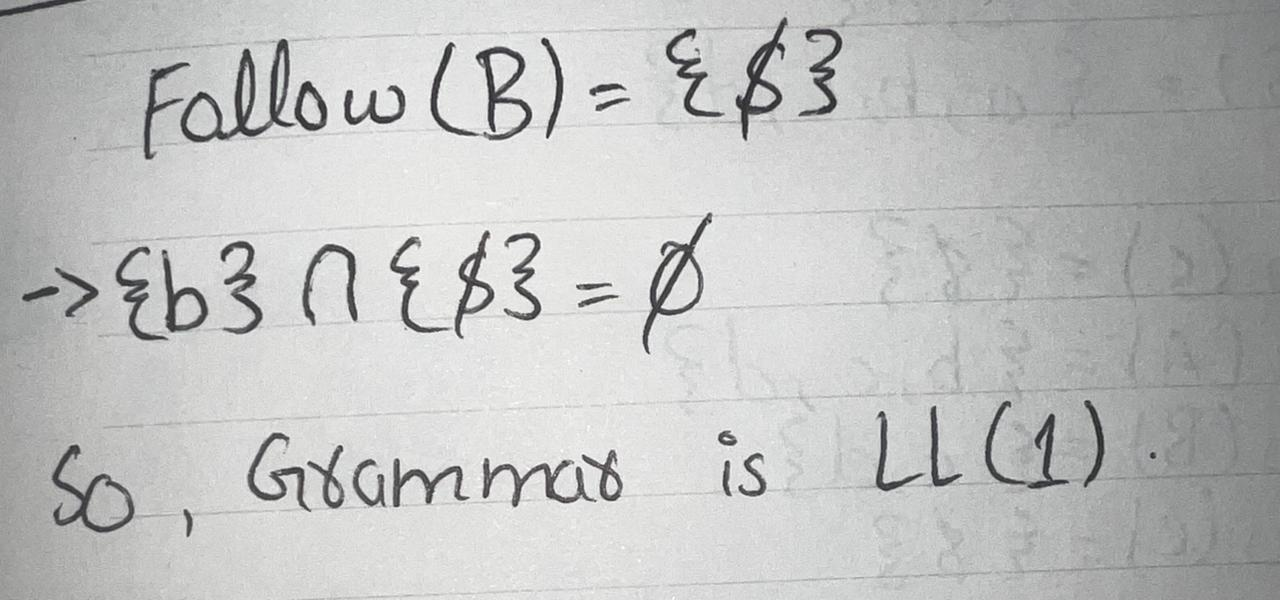 Follow (B) = {$}
-> {b} ∩ {$} = ∅
So, Grammar is LL(1).